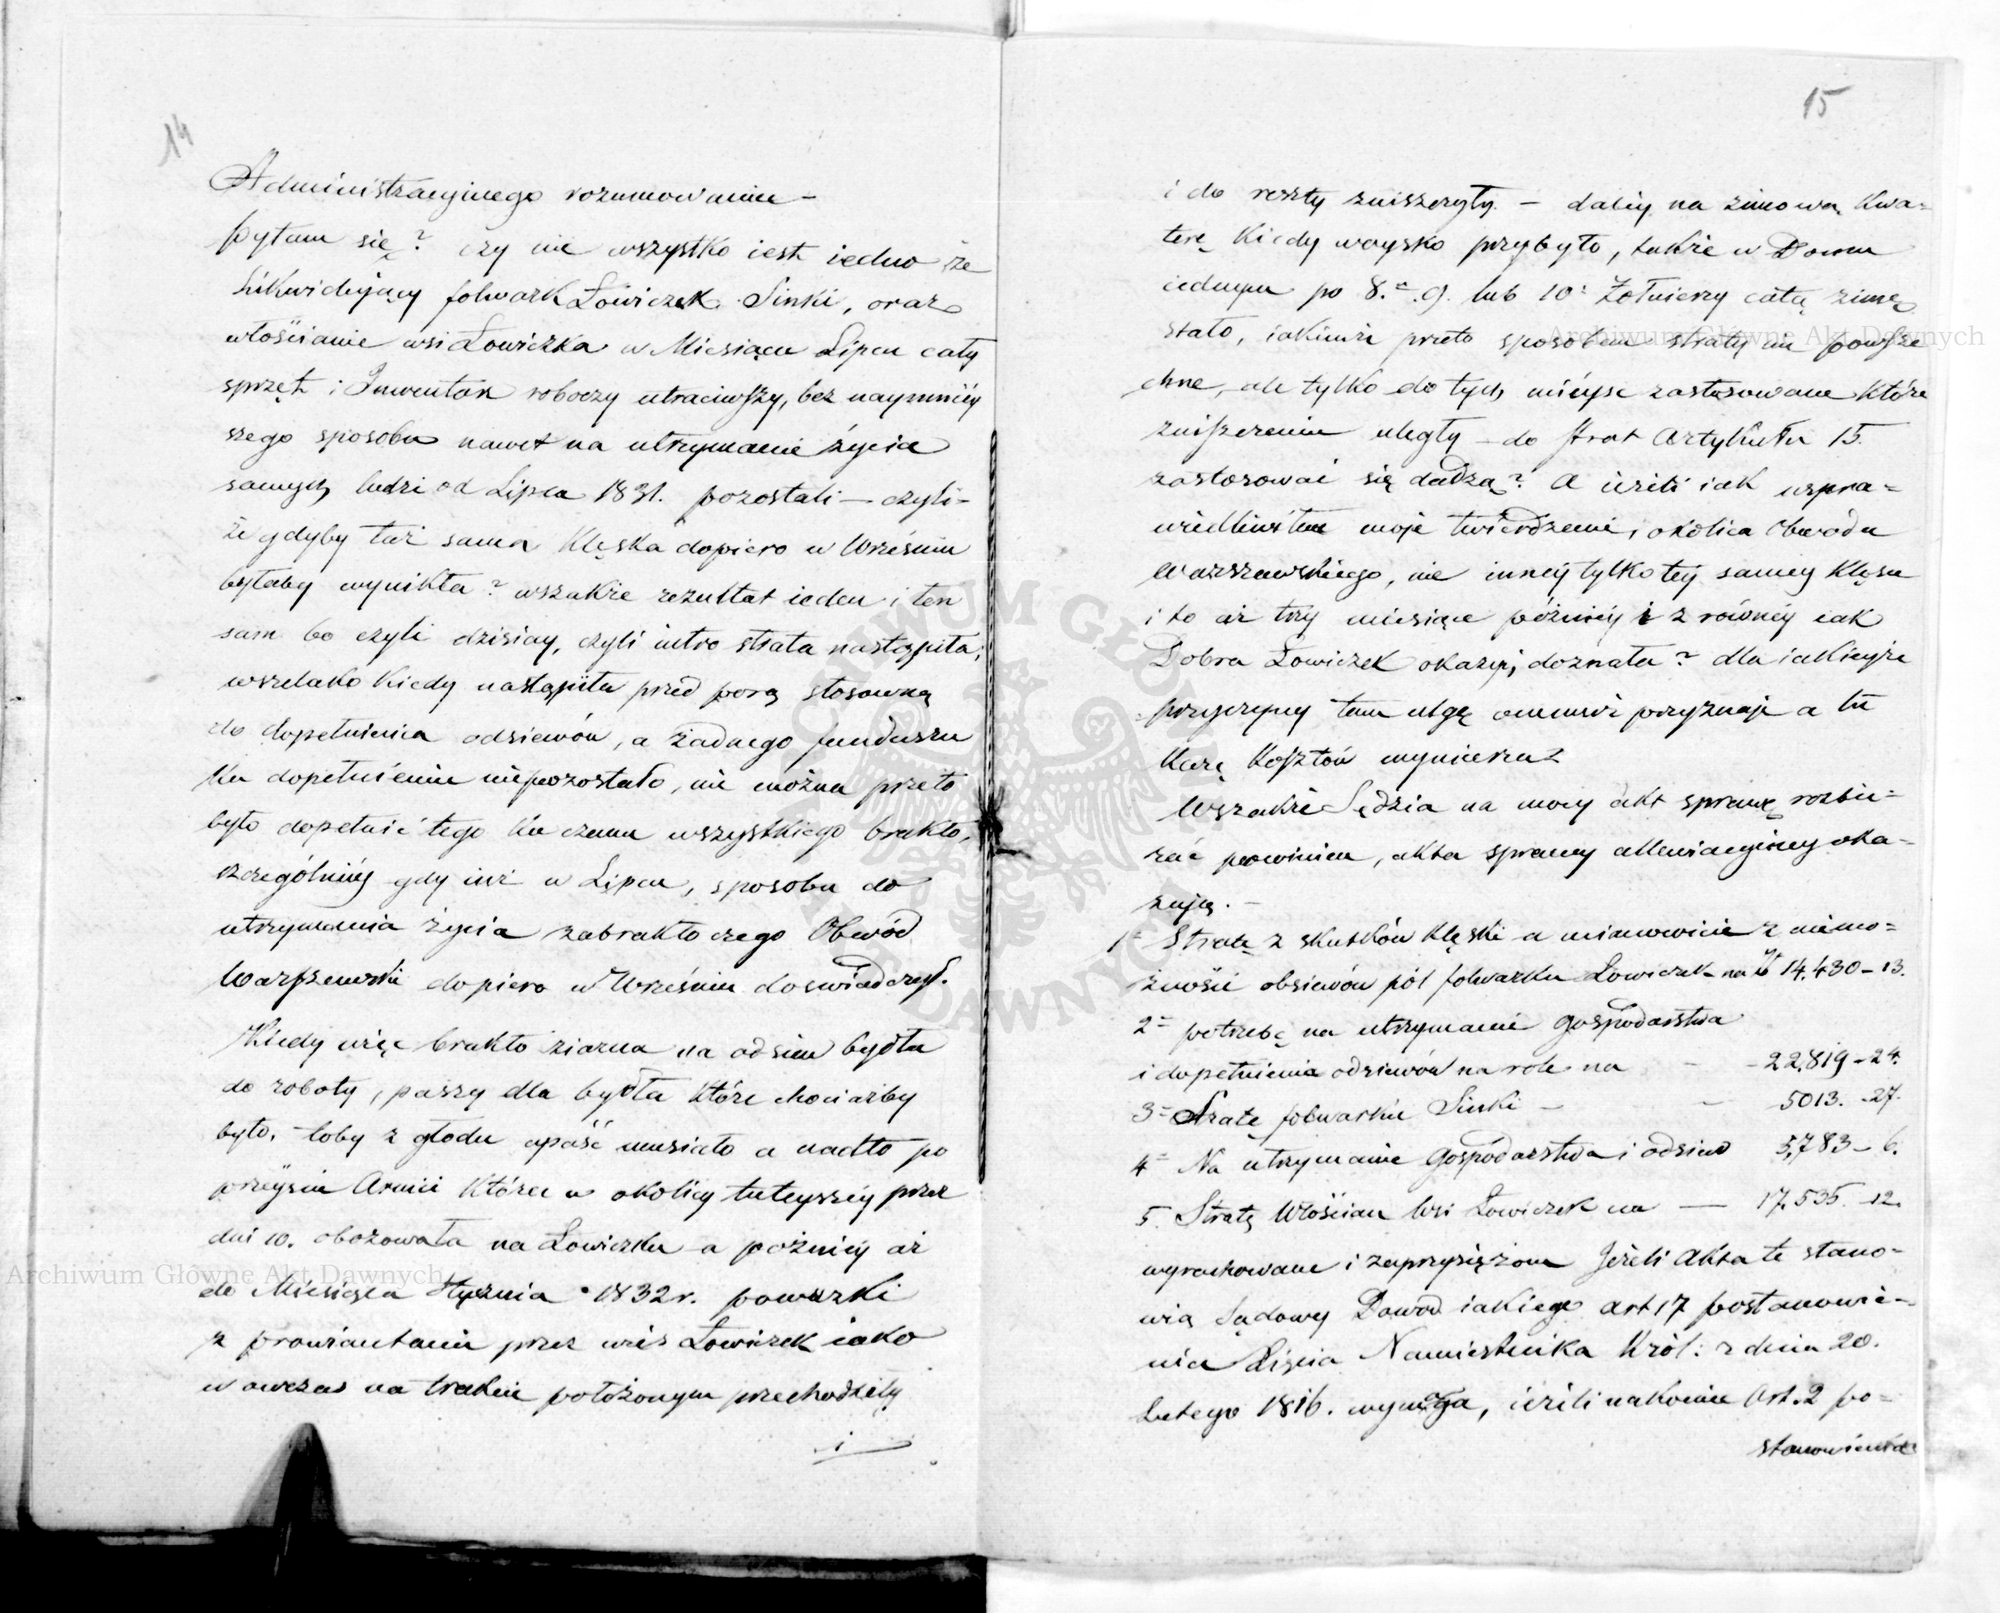 14
Administracyinego rozumowanie —
pytam się? czy nie wszystko iest iedno że
Likwiduiący folwark Łowiczek Sinki, oraz
włościanie wsi Łowiczka w Miesiącu Lipcu cały
sprzęt i Inwentarz roboczy utraciwszy, bez naymniéy
szego sposobu nawet na utrzymanie życia
samych ludzi od Lipca 1831. pozostali — czyli-
że gdyby taż sama Klęska dopiero w Wrześniu
byłaby wynikła? wszakże rezultat ieden i ten
sam bo czyli dzisiay, czyli iutro strata nastąpiła;
wszelako kiedy nastąpiła przed porą stosowną
do dopełnienia odsiewów, a żadnego funduszu
ku dopełnieniu niepozostało, nie można przeto
było dopełnić tego ku czemu wszystkiego brakło,
szczególniéy gdy iuż w Lipcu, sposobu do
utrzymania życia zabrakło czego Obwód
Warszawski dopiero w Wrześniu doświadczył.
Kiedy więc brakło ziarna na odsiew bydła
do roboty, paszy dla bydła które chociażby
było, toby z głodu opaść musiało a nadto po
przéyściu Armii która w okolicy tuteyszéy przez
dni 10. obozowała na Łowiczku a poźniéy aż
do Miesiąca Stycznia 1832 r. powszki
z prowiantami przez wieś Łowiczek iako
w owczas na trakcie położonym przechodziły
i
15
i do reszty zniszczyły. — daléy na zimową Kwa=
terę kiedy woysko przybyło, także w Domu
iednym po 8. 9. lub 10 Żołnierzy całą zimę
stało, iakimże przeto sposobem straty nie powsze
chne, ale tylko do tych mieysc zastosowane które
zniszczeniu uległy — do strat Artykułu 15.
zastosować się dadzą? A ieżeli iak uspra=
wiedliwiłem moje twierdzenie, okolica Obwodu
Warszawskiego, nie innéy tylko téy saméy klęsce
i to aż trzy miesiące późniéy i z równéy iak
Dobra Łowiczek okazyi, doznała? dla iakieyże
przyczyny tam ulgę przyznaje a tu
Karę Kosztów wymierza?
Wszakże Sędzia na mocy akt sprawę rozbie=
rać powinien, akta sprawy allewiacyjney oka=
zują. —
1= Stratę z skutków klęski a mianowicie z niemo=
żności obsiewów pól folwarku Łowiczek na zł 14.430 – 13.
2= potrzebę na utrzymanie gospodarstwa
i dopełnienia odsiewów na rok na — – 22,819 – 24.
3= Stratę folwarku Sinki — — 5013. – 27.
4= Na utrzymanie Gospodarstwa i odsiew 5,783 – 6.
5. Stratę Włościan Wsi Łowiczek na — 17,535 – 12.
wyrachowane i zaprzysiężone Jeżeli Akta te stano=
wią Sądowy Dowód iakiego art 17 postanowie=
nia Xięcia Namiestnika Król: z dnia 20.
Lutego 1816. wymaga, ieżeli nakoniec Art. 2 po=
stanowienia